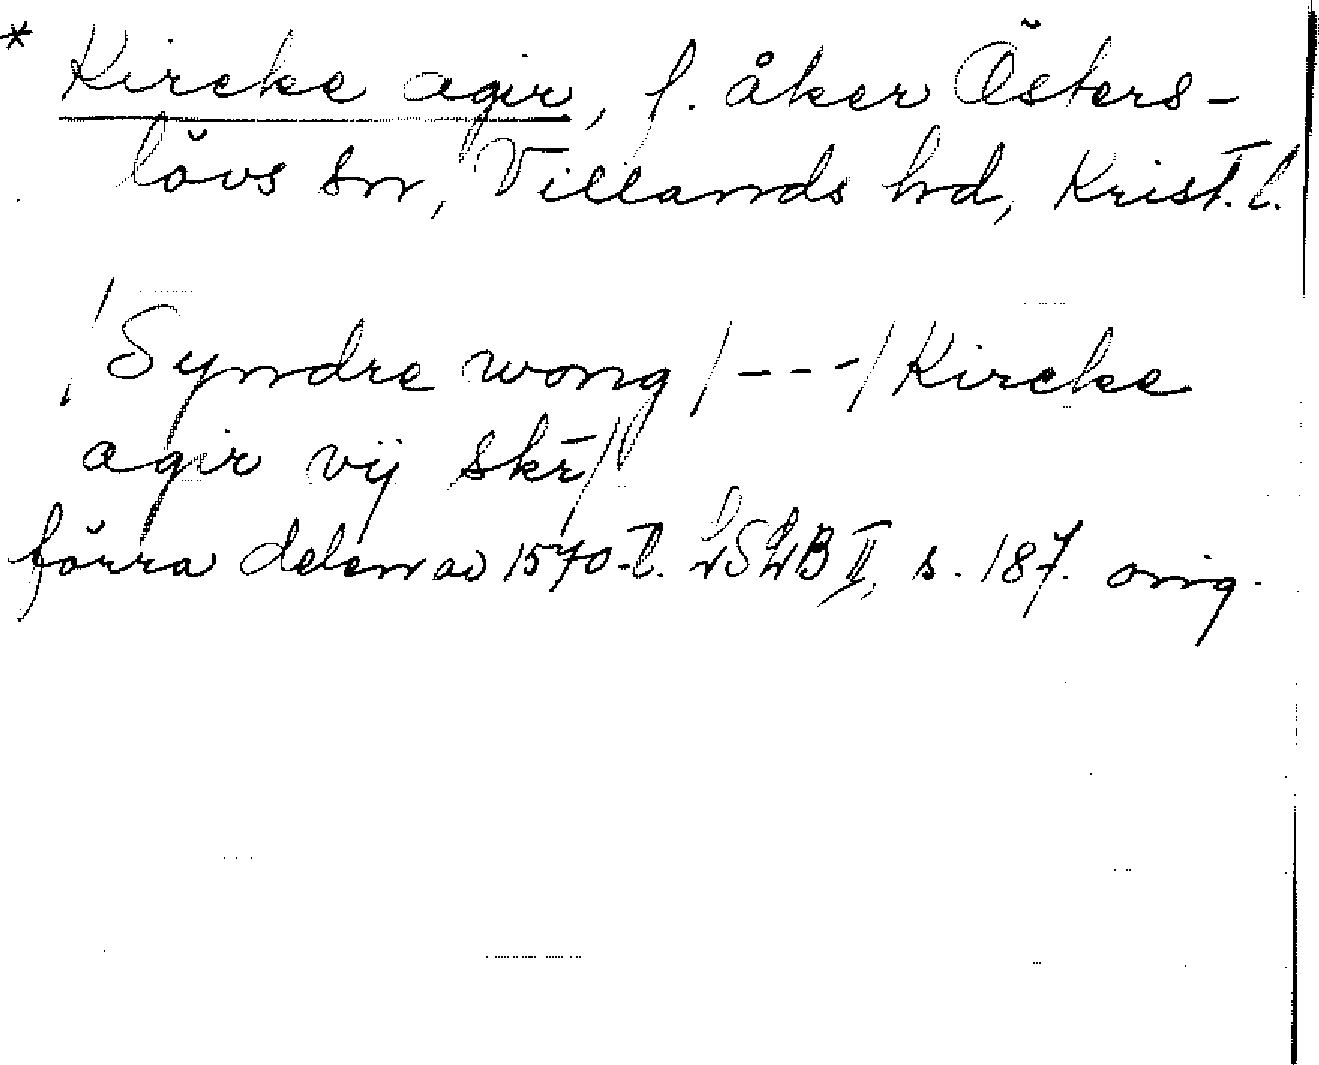 * Kircke agir, f. åker Östers-
lövs sn, Villands hd, Krist. l.
/Syndre wong /---/ Kircke
agir vij skr̄/
förra delen av 1570-t. LSLB II, s. 187. orig.